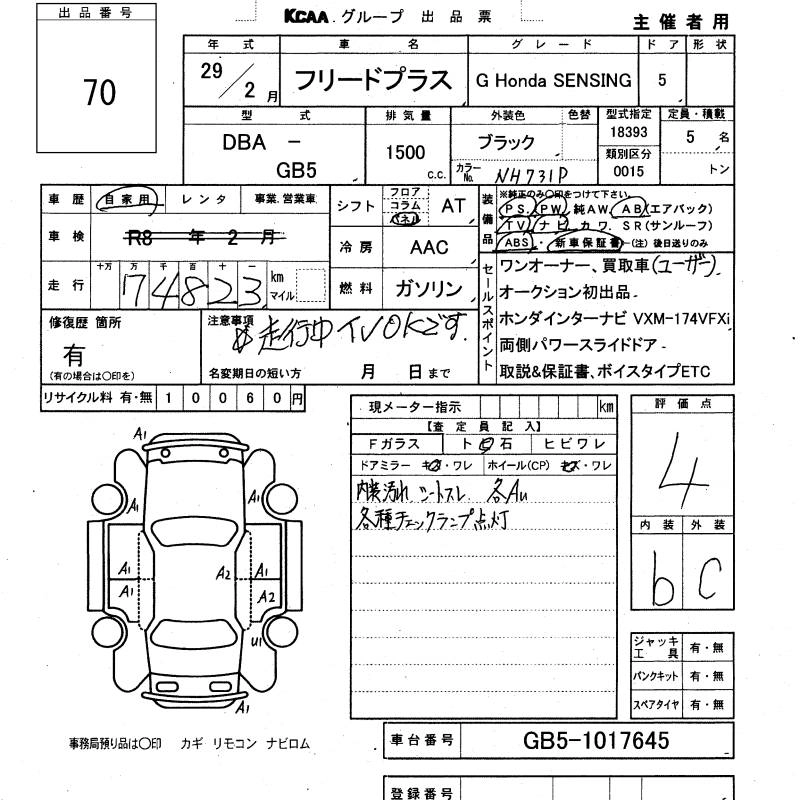 出品番号
70
KCAA グループ 出品票
主催者用
年式 車名 グレード ドア 形状
29/2月 フリードプラス G Honda SENSING 5
型式 排気量 外装色 色替 型式指定 定員・積載
DBA - GB5 1500 c.c. ブラック 18393 5名
カラーNo. NH731P 類別区分 0015 トン
車歴 自家用 レンタ 事業、営業車
車検 R8年2月
走行 十万 万 千 百 十 一 km マイル
74823
シフト フロア コラム パネル AT
冷房 AAC
燃料 ガソリン
装備品 ※純正のみ○印をつけて下さい。
PS. PW. 純AW. AB(エアバック)
TV ナビ カワ. SR(サンルーフ)
ABS ・ 新車保証書 (注) 後日送りのみ
セールスポイント
ワンオーナー、買取車(ユーザー)
オークション初出品
ホンダインターナビ VXM-174VFXi
両側パワースライドドア
取説&保証書、ボイスタイプETC
修復歴 箇所
有
(有の場合は○印を)
注意事項
走行中TVOKです.
名変期日の短い方 月 日まで
リサイクル料 有・無 10060円
現メーター指示 km
【査定員記入】
Fガラス ト石 ヒビワレ
ドアミラー キズ・ワレ ホイール(CP) キズ・ワレ
内装汚れ シートスレ 各AU
各種チェックランプ点灯
評価点
4
内装 外装
b C
A1
A1
A1
A1
A1
A2
A1
A2
U1
A1
ジャッキ工具 有・無
パンクキット 有・無
スペアタイヤ 有・無
事務局預り品は○印 カギ リモコン ナビロム
車台番号 GB5-1017645
登録番号